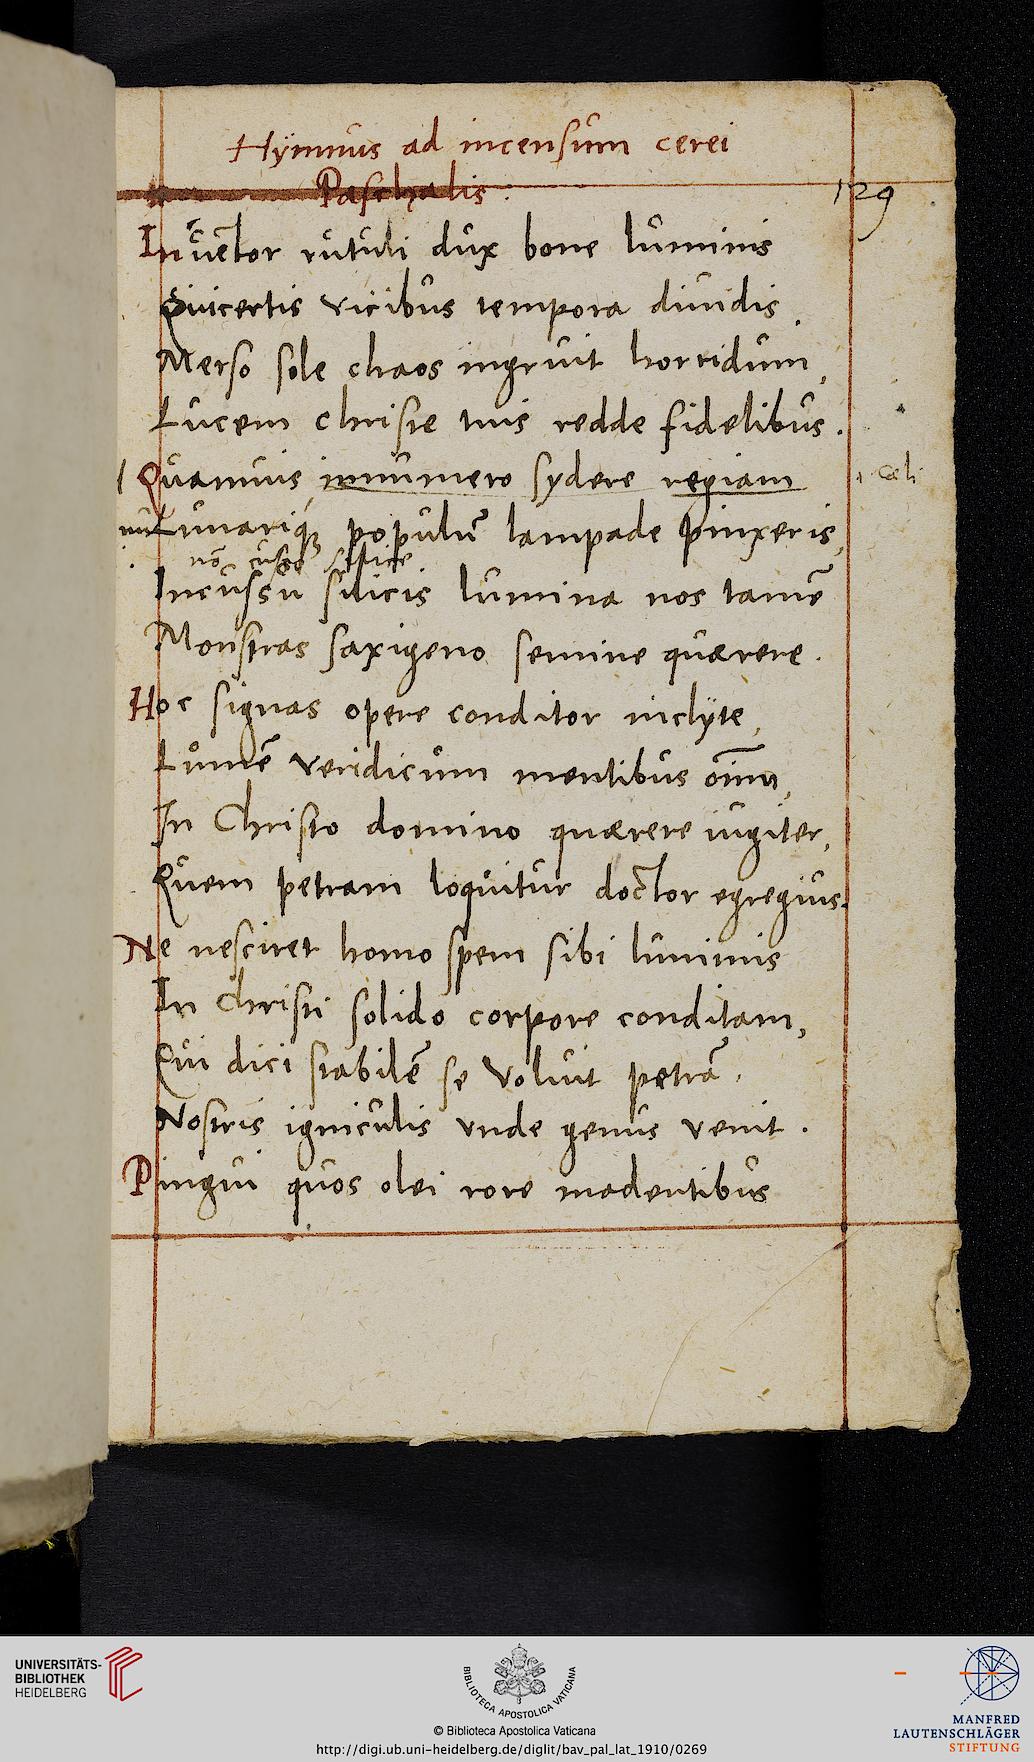 Hÿmnus ad incensum cerei
Paschalis .
129
Inuentor rutuli dux bone luminis
Qui certis vicibus tempora diuidis,
Merso sole chaos ingruit horridum,
Lucem christe tuis redde fidelibus.
Quamuis innumero sydere regiam
cęli
Lunariq; populū lampade pinxeris,
nō
Incussu silicis lumina nos tamē
Monstras saxigeno semine quærere.
Hoc signas opere conditor inclÿte,
Lumē veridicum mentibus oīm,
In Christo domino quærere iugiter,
Quem petram loquitur doctor egregius.
Ne nesciret homo spem sibi luminis
In Christi solido corpore conditam,
Qui dici stabilē se voluit petrā.
Nostris igniculis vnde genus venit.
Pingui quos olei rore madentibus
UNIVERSITÄTS-
BIBLIOTHEK
HEIDELBERG
BIBLIOTECA APOSTOLICA VATICANA
© Biblioteca Apostolica Vaticana
http://digi.ub.uni-heidelberg.de/diglit/bav_pal_lat_1910/0269
MANFRED
LAUTENSCHLÄGER
STIFTUNG